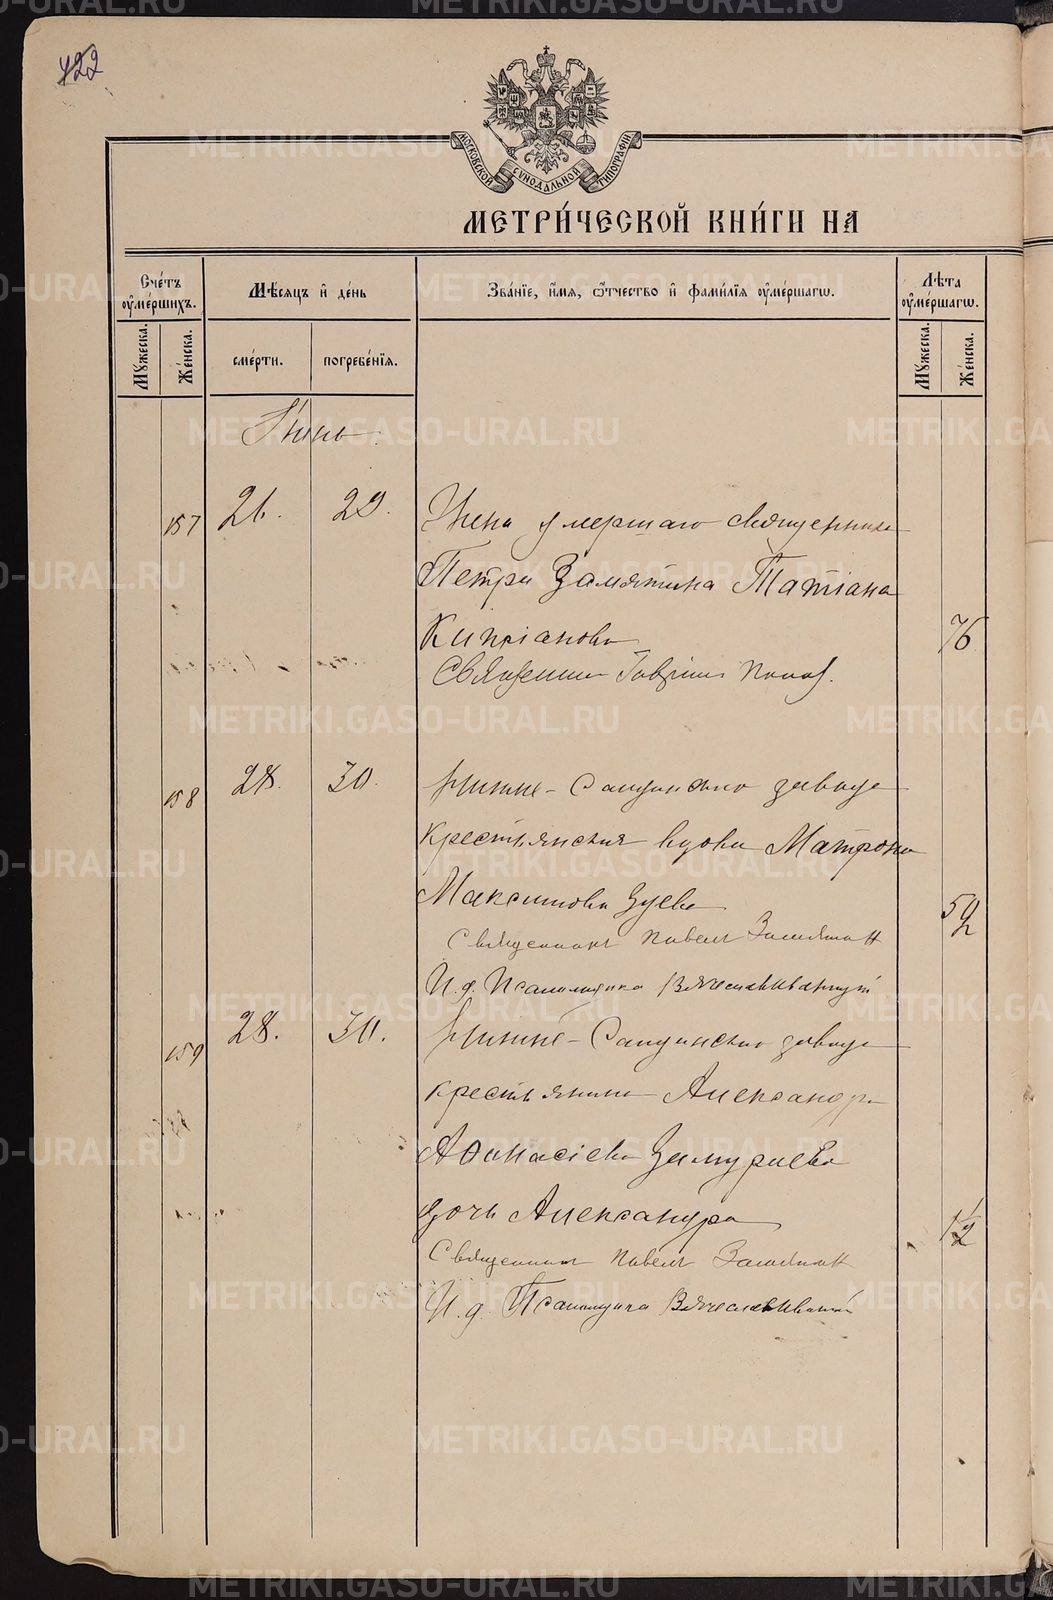 422
МОСКОВСКОЙ СѴНОДАЛЬНОЙ ТИПОГРАФІИ
МЕТРИ́ЧЕСКОЙ КНИ́ГИ НА
Сче́тъ оу҆ме́ршихъ.
Мѣ́сяцъ и҆ де́нь
Зва́нїе, и҆́мѧ, ѻ҆́тчество и҆ фами́лїѧ оу҆ме́ршагѡ.
Лѣ́та оу҆ме́ршагѡ.
Мꙋ́жеска.
Же́нска.
сме́рти.
погребе́нїѧ.
Мꙋ́жеска.
Же́нска.
Іюнь
157 26. 29. Жена умершаго священника
Петра Замятина Татіана
Кипріанова 76
Священник Гавріил Попов.
158 28. 30. Нижне-Салдинскаго завода
крестьянская вдова Матрона
Максимова Зуева 59
Священник Павел Замятин
И. д. Псаломщика Вячеслав
159 28. 30. Нижне-Салдинскаго завода
крестьянина Александра
Аѳанасіева
дочь Александра 1 1/2
Священник Павел Замятин
И. д. Псаломщика Вячеслав
METRIKI.GASO-URAL.RU